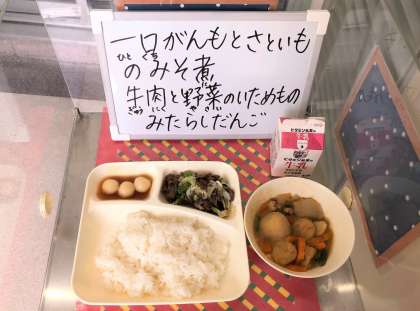 一口がんもとさといも
ひと くち
のみそ煮
に
牛肉と野菜のいためもの
ぎゅう にく や さい
みたらしだんご
牛乳